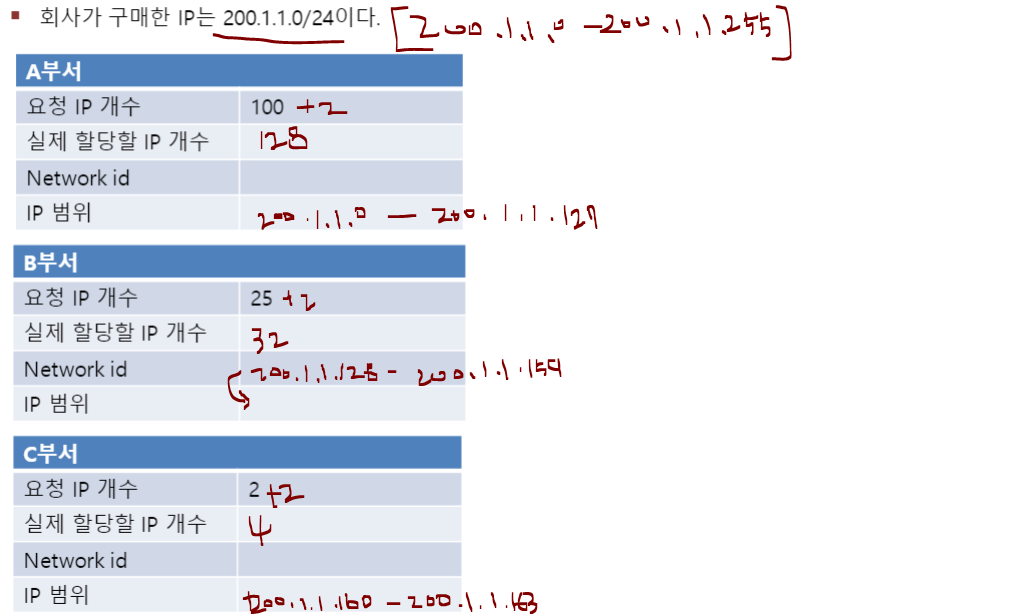 ▪ 회사가 구매한 IP는 200.1.1.0/24이다. [200.1.1.0 - 200.1.1.255]
A부서
요청 IP 개수 100 +2
실제 할당할 IP 개수 128
Network id
IP 범위 200.1.1.0 - 200.1.1.127
B부서
요청 IP 개수 25 +2
실제 할당할 IP 개수 32
Network id 200.1.1.128 - 200.1.1.159
IP 범위
C부서
요청 IP 개수 2 +2
실제 할당할 IP 개수 4
Network id
IP 범위 200.1.1.160 - 200.1.1.163